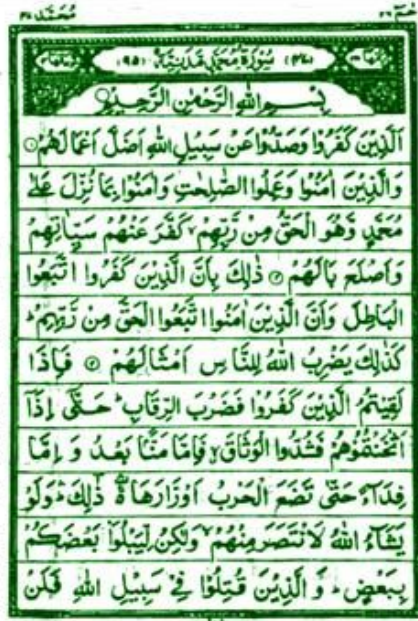 حٰمٓ ٢٦ مُحَمَّد ٤٧
(٤٧) سُوْرَةُ مُحَمَّدٍ مَدَنِيَّةٌ (٩٥)
بِسْمِ اللهِ الرَّحْمٰنِ الرَّحِيْمِ
اَلَّذِيْنَ كَفَرُوْا وَصَدُّوْا عَنْ سَبِيْلِ اللهِ اَضَلَّ اَعْمَالَهُمْ ۝١
وَالَّذِيْنَ اٰمَنُوْا وَعَمِلُوا الصّٰلِحٰتِ وَاٰمَنُوْا بِمَا نُزِّلَ عَلٰى
مُحَمَّدٍ وَّهُوَ الْحَقُّ مِنْ رَّبِّهِمْ ۙ كَفَّرَ عَنْهُمْ سَيِّاٰتِهِمْ
وَاَصْلَحَ بَالَهُمْ ۝٢ ذٰلِكَ بِاَنَّ الَّذِيْنَ كَفَرُوا اتَّبَعُوا
الْبَاطِلَ وَاَنَّ الَّذِيْنَ اٰمَنُوا اتَّبَعُوا الْحَقَّ مِنْ رَّبِّهِمْ ؕ
كَذٰلِكَ يَضْرِبُ اللهُ لِلنَّاسِ اَمْثَالَهُمْ ۝٣ فَاِذَا
لَقِيْتُمُ الَّذِيْنَ كَفَرُوْا فَضَرْبَ الرِّقَابِ ؕ حَتّٰۤى اِذَاۤ
اَثْخَنْتُمُوْهُمْ فَشُدُّوا الْوَثَاقَ ۙ فَاِمَّا مَنًّۢا بَعْدُ وَاِمَّا
فِدَآءً حَتّٰى تَضَعَ الْحَرْبُ اَوْزَارَهَا ۛۚ ذٰلِكَ ۛؕ وَلَوْ
يَشَآءُ اللهُ لَانْتَصَرَ مِنْهُمْ ۙ وَلٰكِنْ لِّيَبْلُوَا۟ بَعْضَكُمْ
بِبَعْضٍ ؕ وَالَّذِيْنَ قُتِلُوْا فِيْ سَبِيْلِ اللهِ فَلَنْ